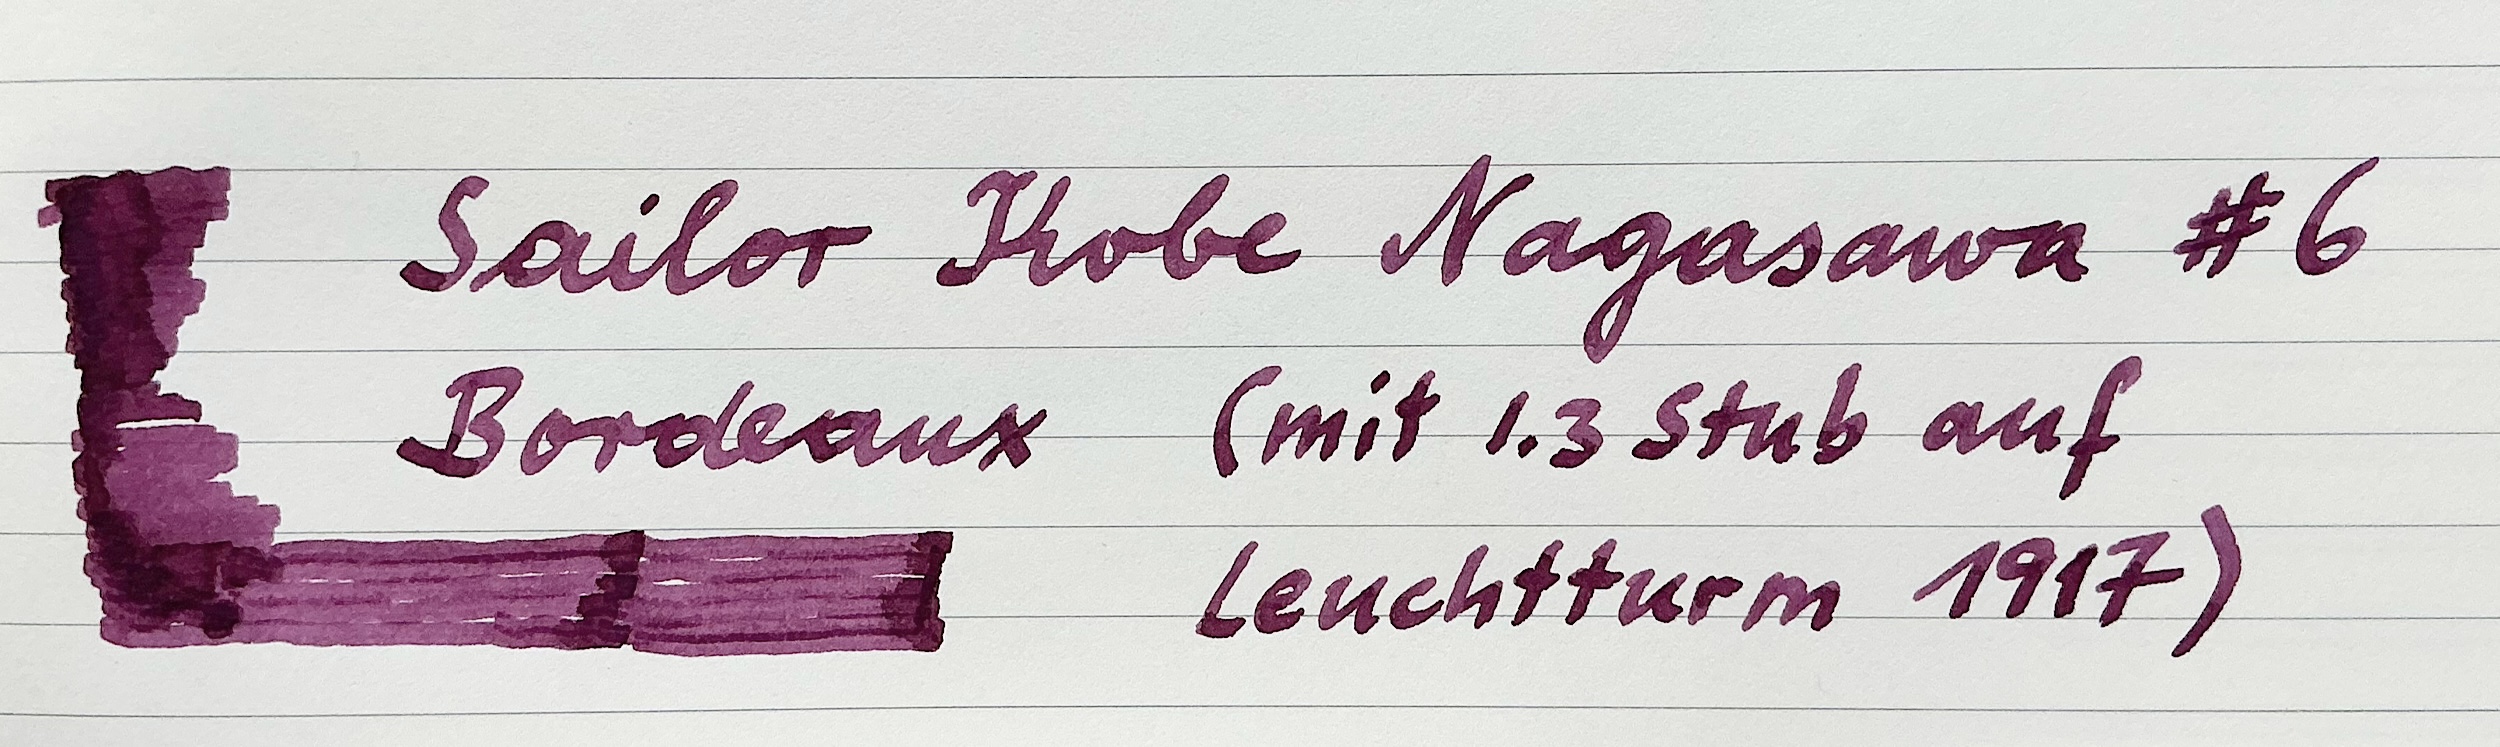 Sailor Kobe Nagasawa #6
Bordeaux (mit 1.3 Stub auf
Leuchtturm 1917)